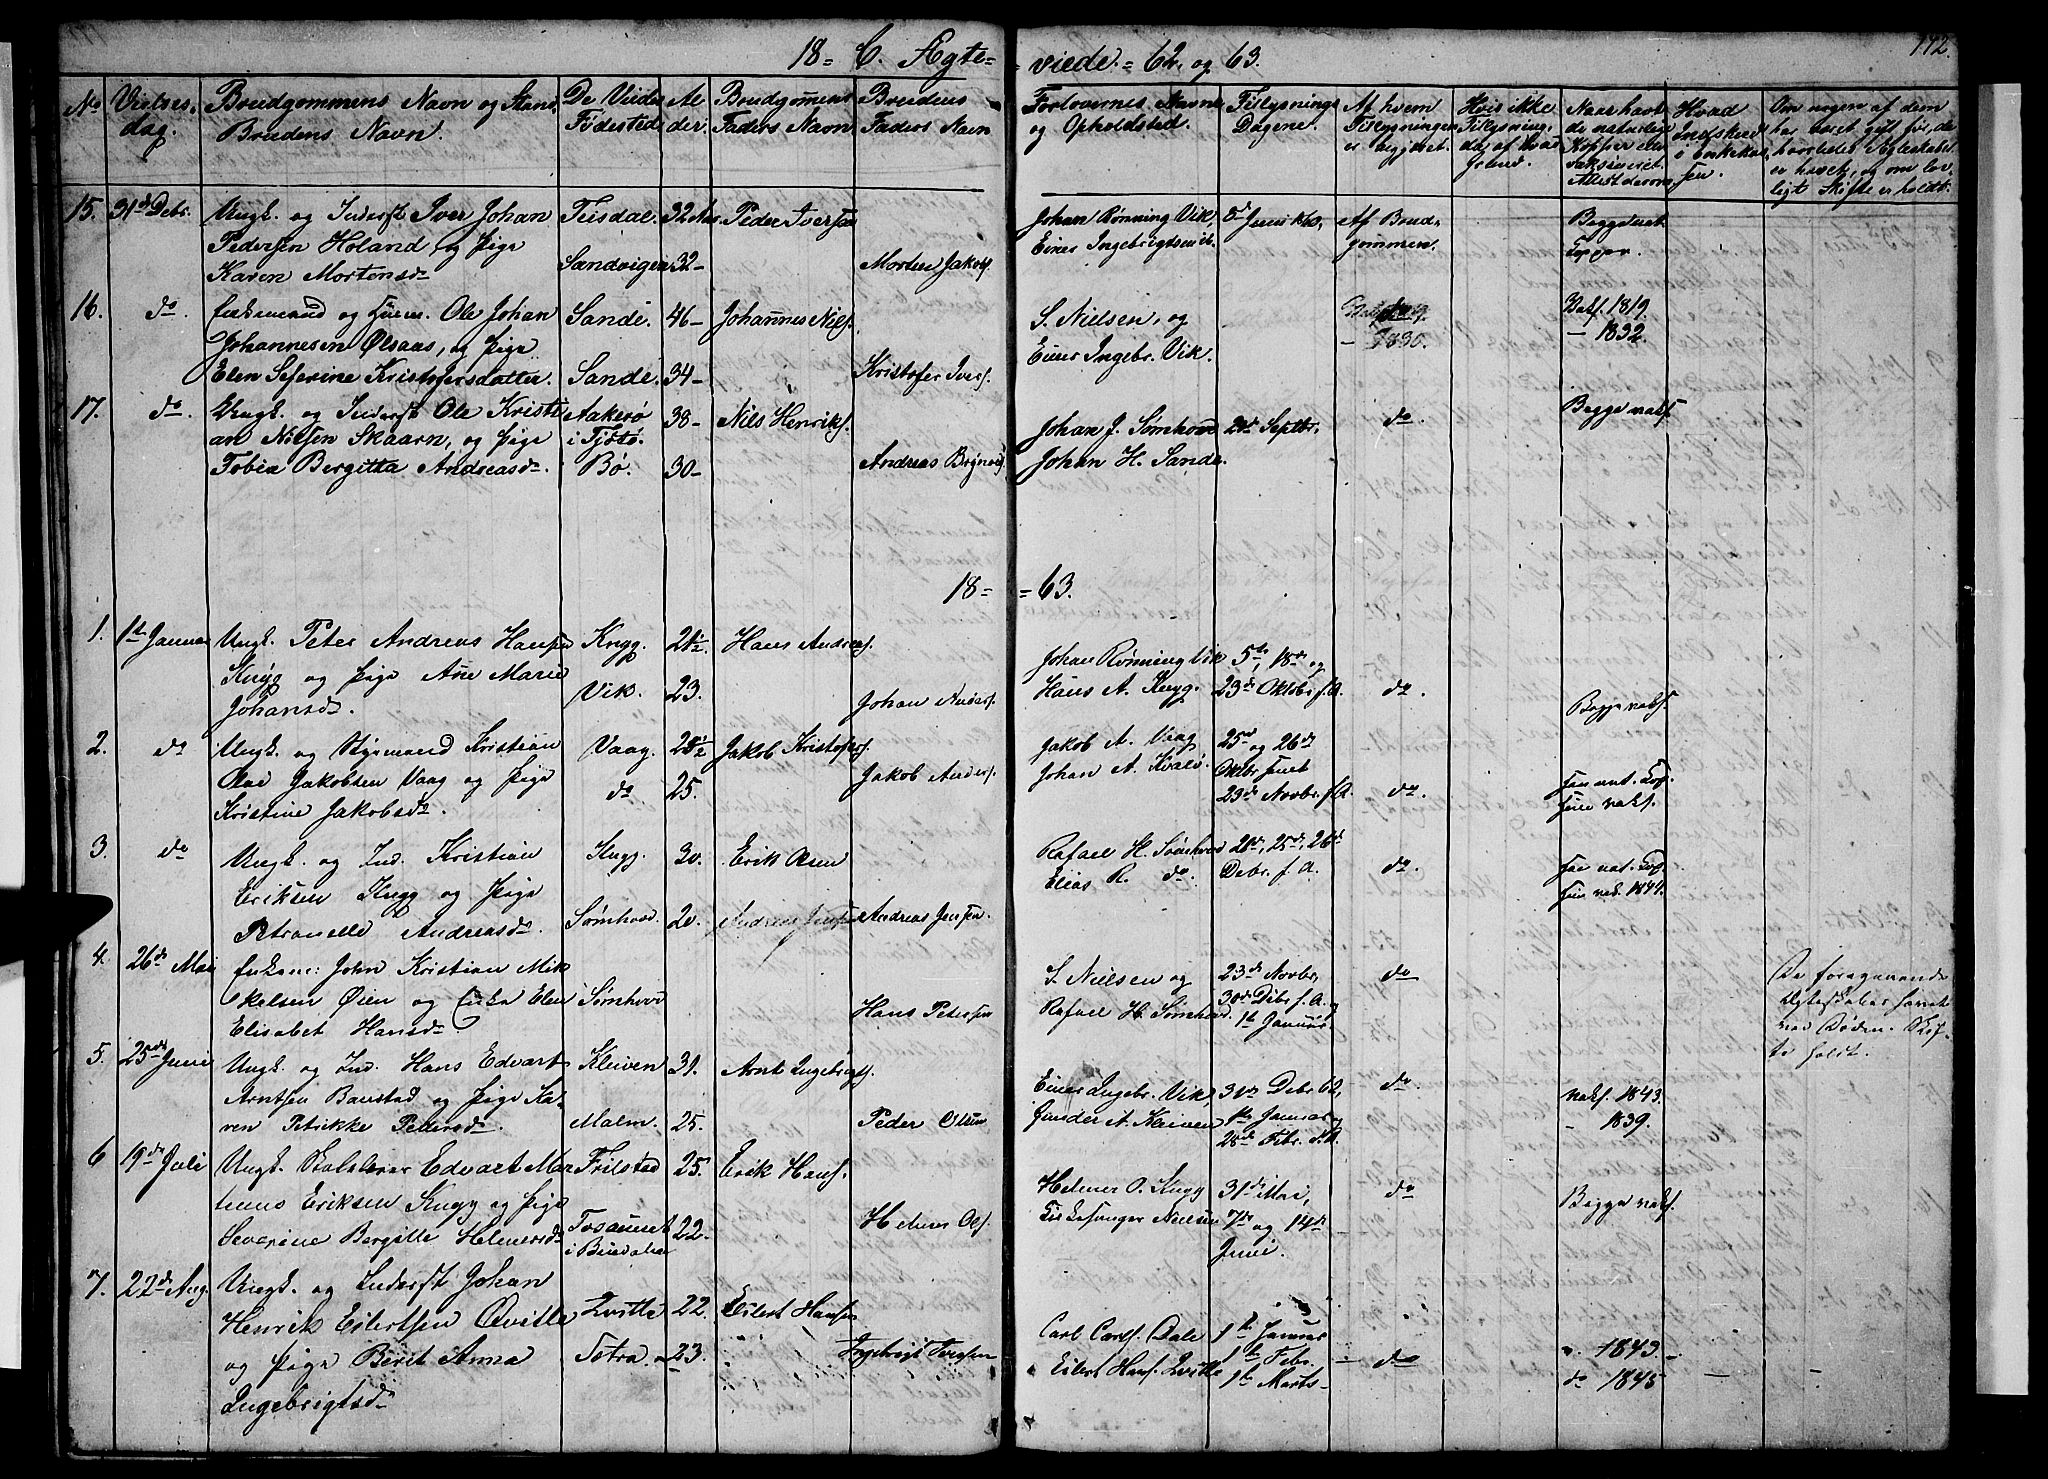 18= C. Ægte= =viede.= 62 og 63.
172
No
Vielses-
dag.
Brudgommens Navn og Stand
Brudens Navn.
De Viedes
Fødested
Al
der.
Brudgomens
Faders Navn
Brudens
Faders Navn
Forlovernes Navne
og Opholdsted.
Tillysnings
Dagene.
Af hvem
Tillysningen
er begjæret.
Hvis ikke
Tillysning,
da af hvad
Grund.
Naar havt
de naturlige
Kopper eller
vaksineret.
Attest derom
Hvad
Indskud
i Enkekas-
sen.
Om nogen af dem
har været gift før, da
hvorledes Ægteskabet
er hævet, og om lov-
ligt Skifte er holdt.
15. 31d Debr. Ungk. og Inderst Iver Johan
Pedersen Holand, og Pige
Karen Mortensd.
Teisdal.
Sandvigen
32 Aar
32-
Peder Iversen
Morten Jakobs.
Johan Rønning Vik
Einer Ingebrigtsen ib.
8d Juni
Af Brud-
gommen.
Begge nat.
Kopper.
16. do. Enkemand og Huusm. Ole Johan
Johannesen Ølsaas, og Pige
Elen Seferine Kristofersdatter.
Sande.
Sande.
46-
34-
Johannes Niels.
Kristofer Ivers.
S. Nielsen, og
Einer Ingebr. Vik.
- 1830.
Vaks. 1819.
- 1832.
17. do. Ungk. og Inderst Ole Kristi
an Nielsen Skaarn, og Pige
Tobia Bergitta Andreasd.
Aakerø
i Tjøtø.
Bø.
38-
30-
Nils Henriks.
Andreas
Johan J. Sømhoved
Johan H. Sande.
28d Septbr.
do.
Begge vaks.
18= =63.
1. 1t Januar Ungk. Peter Andreas Hansen
Knyg og Pige Ane Marie
Johansd.
Knyg.
Vik.
21½.
23.
Hans Andreas.
Johan Anders.
Johan Rønning Vik
Hans A. Knyg.
5te, 18de og
23de Oktobr. f. A.
do.
Begge vaks.
2. do Ungk. og Styrmand Kristian
Olai Jakobsen Vaag og Pige
Kristine Jakobsd.
Vaag.
do.
28½
25.
Jakob Kristofers.
Jakob Anders.
Jakob A. Vaag
Johan A. Kvalø.
25de og 26de
Oktbr. samt
23de Novbr. f. A.
do.
Han nat. Kop.
Hun vaks.
3. do Ungk. og Ind. Kristian
Eriksen Knyg og Pige
Petronelle Andreasd.
Knyg.
Sømhoved.
30.
20.
Erik Olsen
Andreas Jensen.
Rafael H. Sømhoved
Elias R. do.
28de, 25de, 26de
Debr. f. A.
do.
Han nat. Kop.
Hun vaks. 1844.
4. 26d Mai Enkem: John Kristian Mik
kelsen Øien og Enke Elen
Elisabet Hansd.
Sømhoved
Hans Petersen
S. Nielsen og
Rafael H. Sømhoved
23de Novbr.
30de Debr. f. A. og
1te Januar
do
De foregaaende
Ægteskaber hævet
ved Døden. Skif-
te holdt.
5. 25de Juni Ungk. og Ind. Hans Edvart
Arntsen Baustad og Pige Ka-
ren Petrikke Pedersd.
Kleiven
Malm.
31.
25.
Arnt Ingebrigts.
Peder Olsen
Einer Ingebr. Vik,
Gunder A. Kleiven
31te Debr. 62,
1te Januar og
28de Febr. d. A.
do.
vaks. 1843.
- 1839.
6 19de Juli Ungk. Skolelærer Edvart Mar
tinus Eriksen Knyg og Pige
Severine Bergitte Helmersd.
Frilstad
Tosaunet
i Bindalen
25.
22.
Erik Hans.
Helmer Ols.
Helmer O. Knyg
Kirkesanger Nielsen
31de Mai,
7de og 14de
Juni.
do
Begge vaks.
7. 22de Aug. Ungk. og Inderst Johan
Henrik Eilertsen Qvitle
og Pige Berit Anna
Ingebrigtsd.
Qvitle
Tetra
22.
23.
Eilert Hansen
Ingebrigt Iversen
Carl Carls. Dale
Eilert Hans. Qvitle
1te Januar
1te Febr.
1te Marts
- do
v. 1843.
do 1845